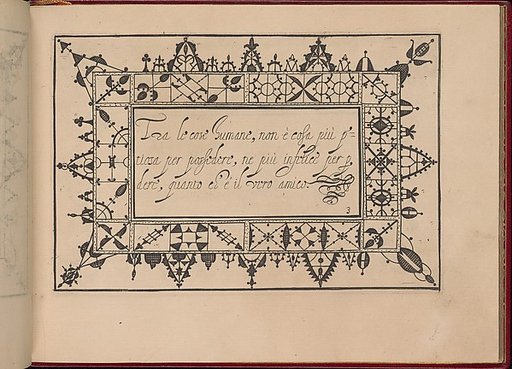 Tra le cose humane, non è cosa più
per possedere, ne più infelice per
dere, quanto è il vero amico.
3